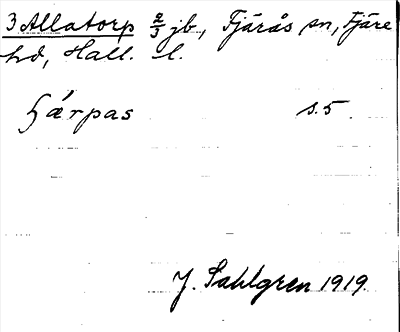 3 Allatorp 2/3 jb., Fjärås sn, Fjäre
hd, Hall. l.
s. 5.
J. Sahlgren 1919.